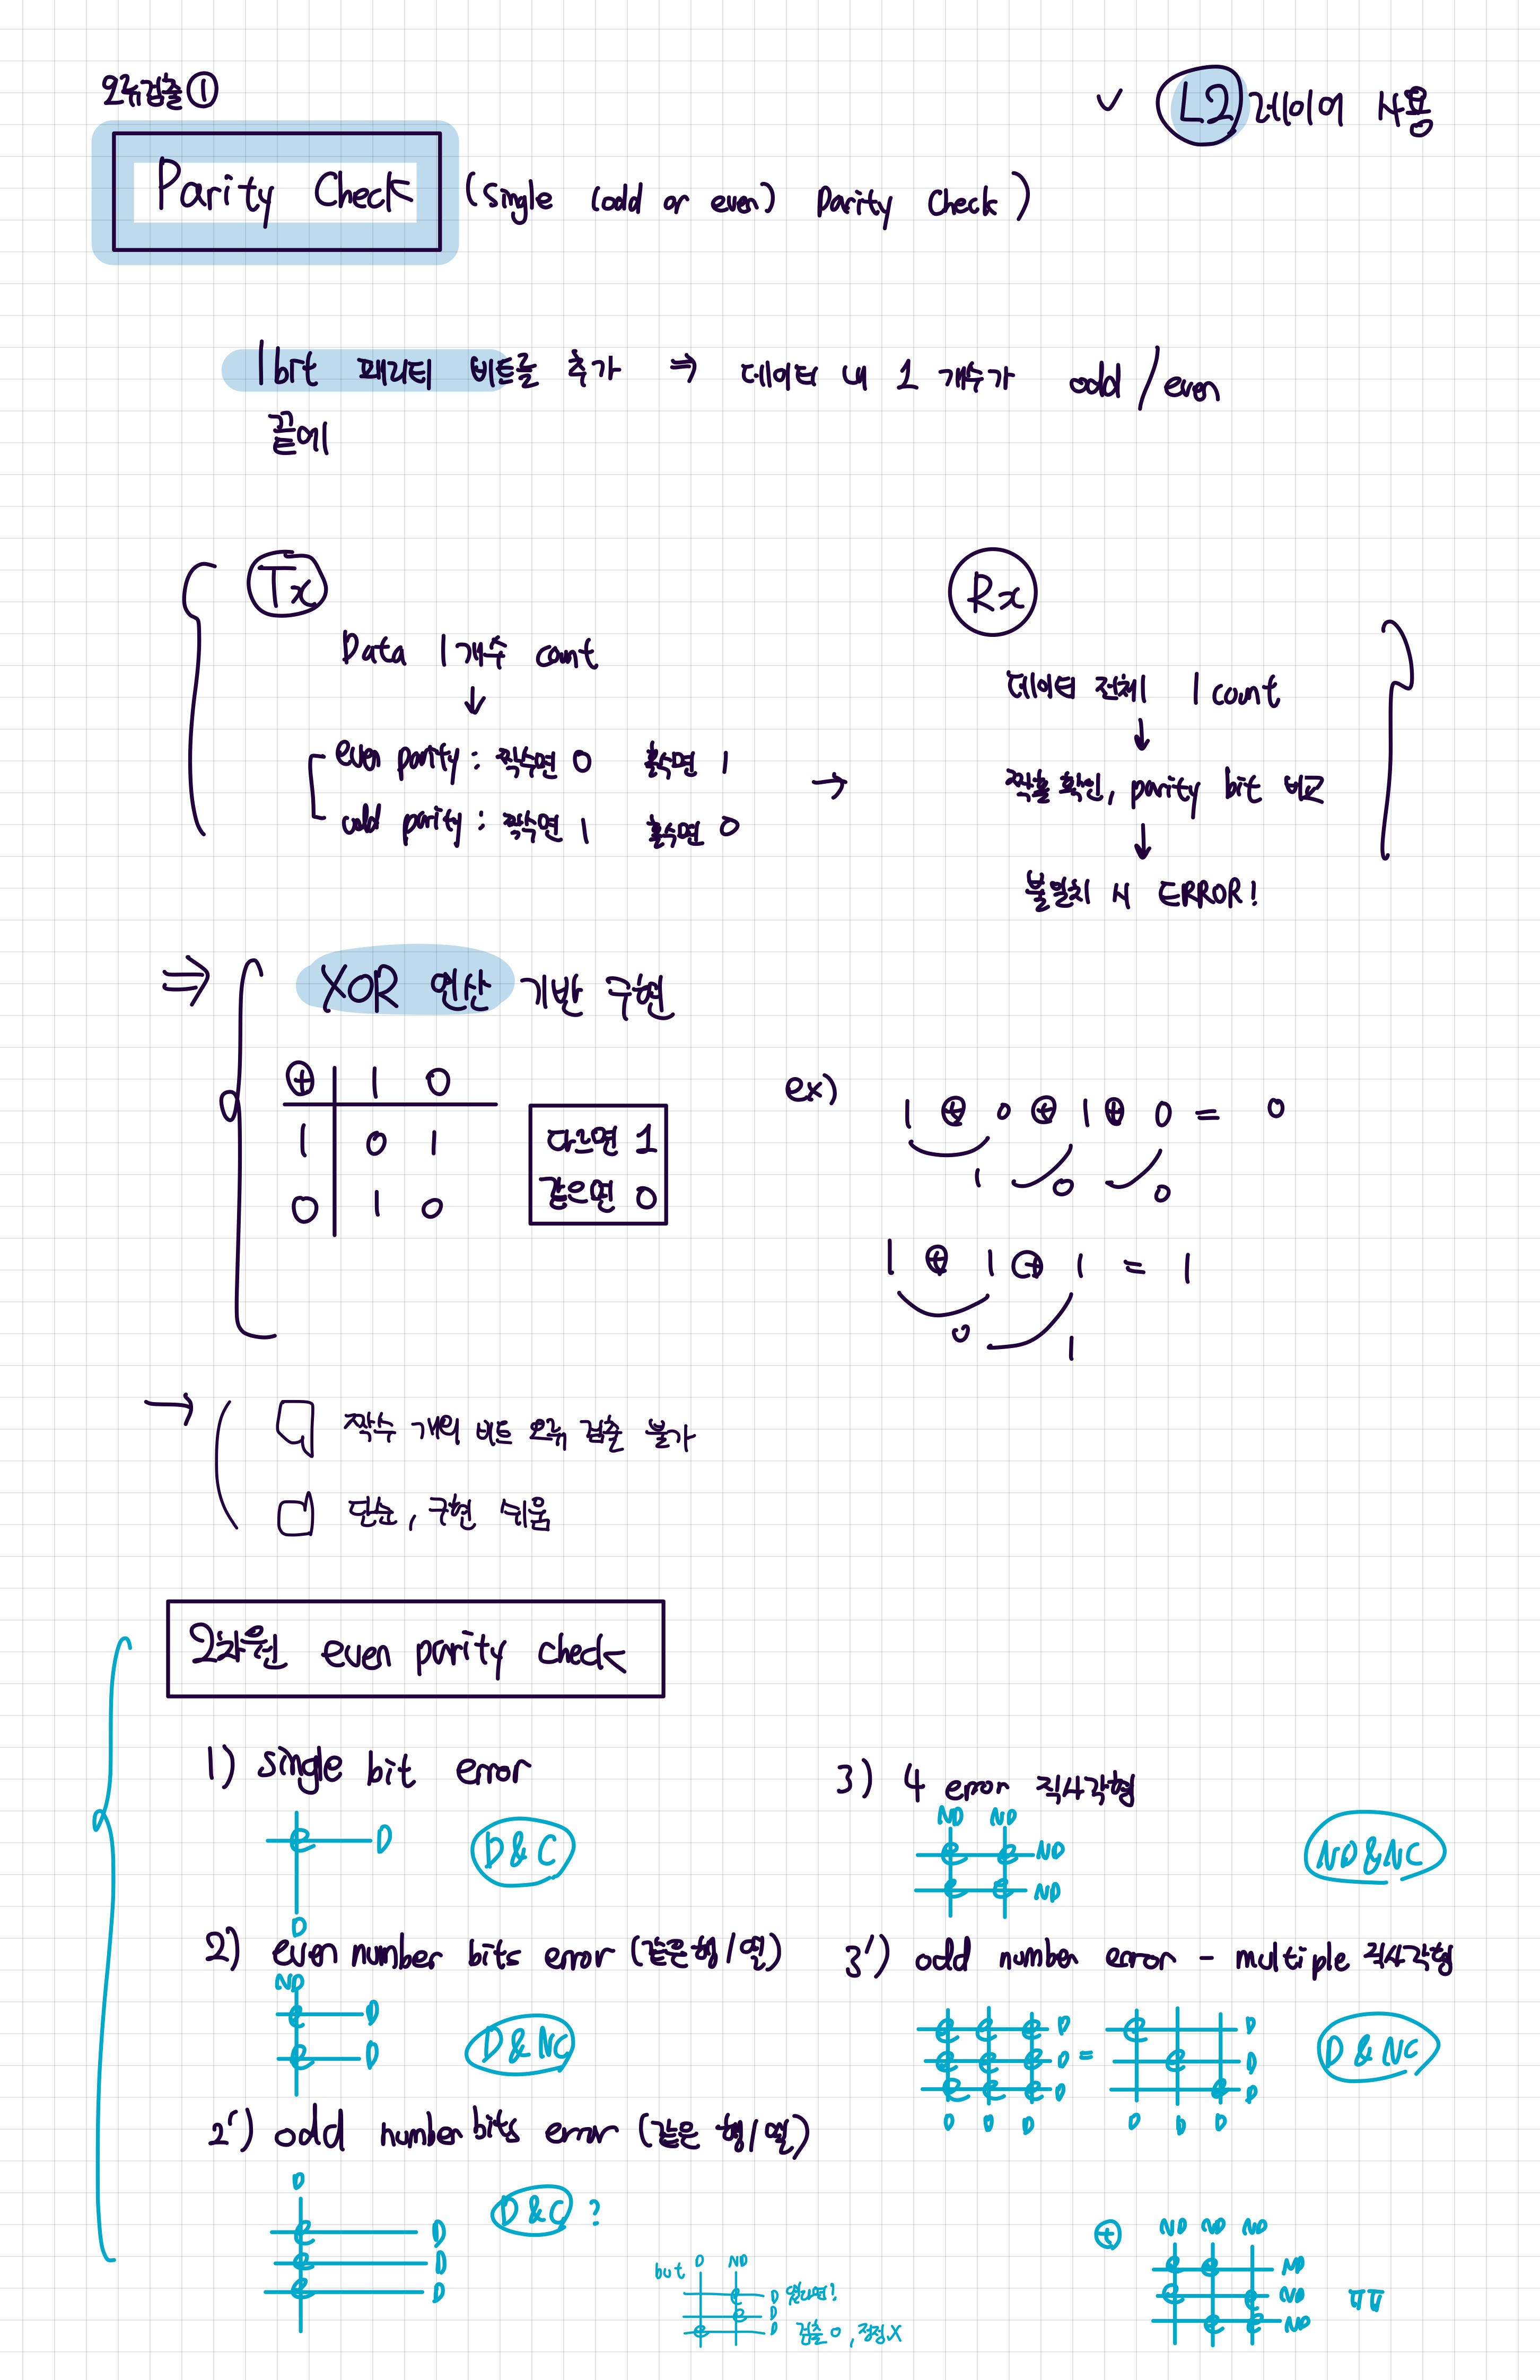 오류검출 ①
✓ L2 레이어 사용
Parity Check (single (odd or even) Parity Check)
1bit 패리티 비트를 추가 ⇒ 데이터 내 1 개수가 odd / even
끝에
Tx
Data 1 개수 count
↓
even parity : 짝수면 0 홀수면 1
odd parity : 짝수면 1 홀수면 0
→
Rx
데이터 전체 1 count
↓
짝홀 확인, parity bit 비교
↓
불일치 시 ERROR!
⇒ XOR 연산 기반 구현
⊕ 1 0
1 0 1
0 1 0
다르면 1
같은면 0
ex)
1 ⊕ 0 ⊕ 1 ⊕ 0 = 0
1 0 0
1 ⊕ 1 ⊕ 1 = 1
0 1
→
짝수 개의 비트 오류 검출 불가
단순, 구현 쉬움
2차원 even parity check
1) single bit error
e D
D
D & C
2) even number bits error (같은 행/열)
ND
e D
e D
D & NC
2') odd number bits error (같은 행/열)
D
e D
e D
e D
D & C ?
but D ND
e D
e D
e D
검출 O, 정정 X
3) 4 error 직사각형
ND ND
e e ND
e e ND
ND & NC
3') odd number error - multiple 직사각형
e e e D
e e e D
e e e D
D D D
=
e D
e D
e D
D D D
D & NC
⊕ ND ND ND
e e ND
e e ND
e e ND
ㅠㅠ